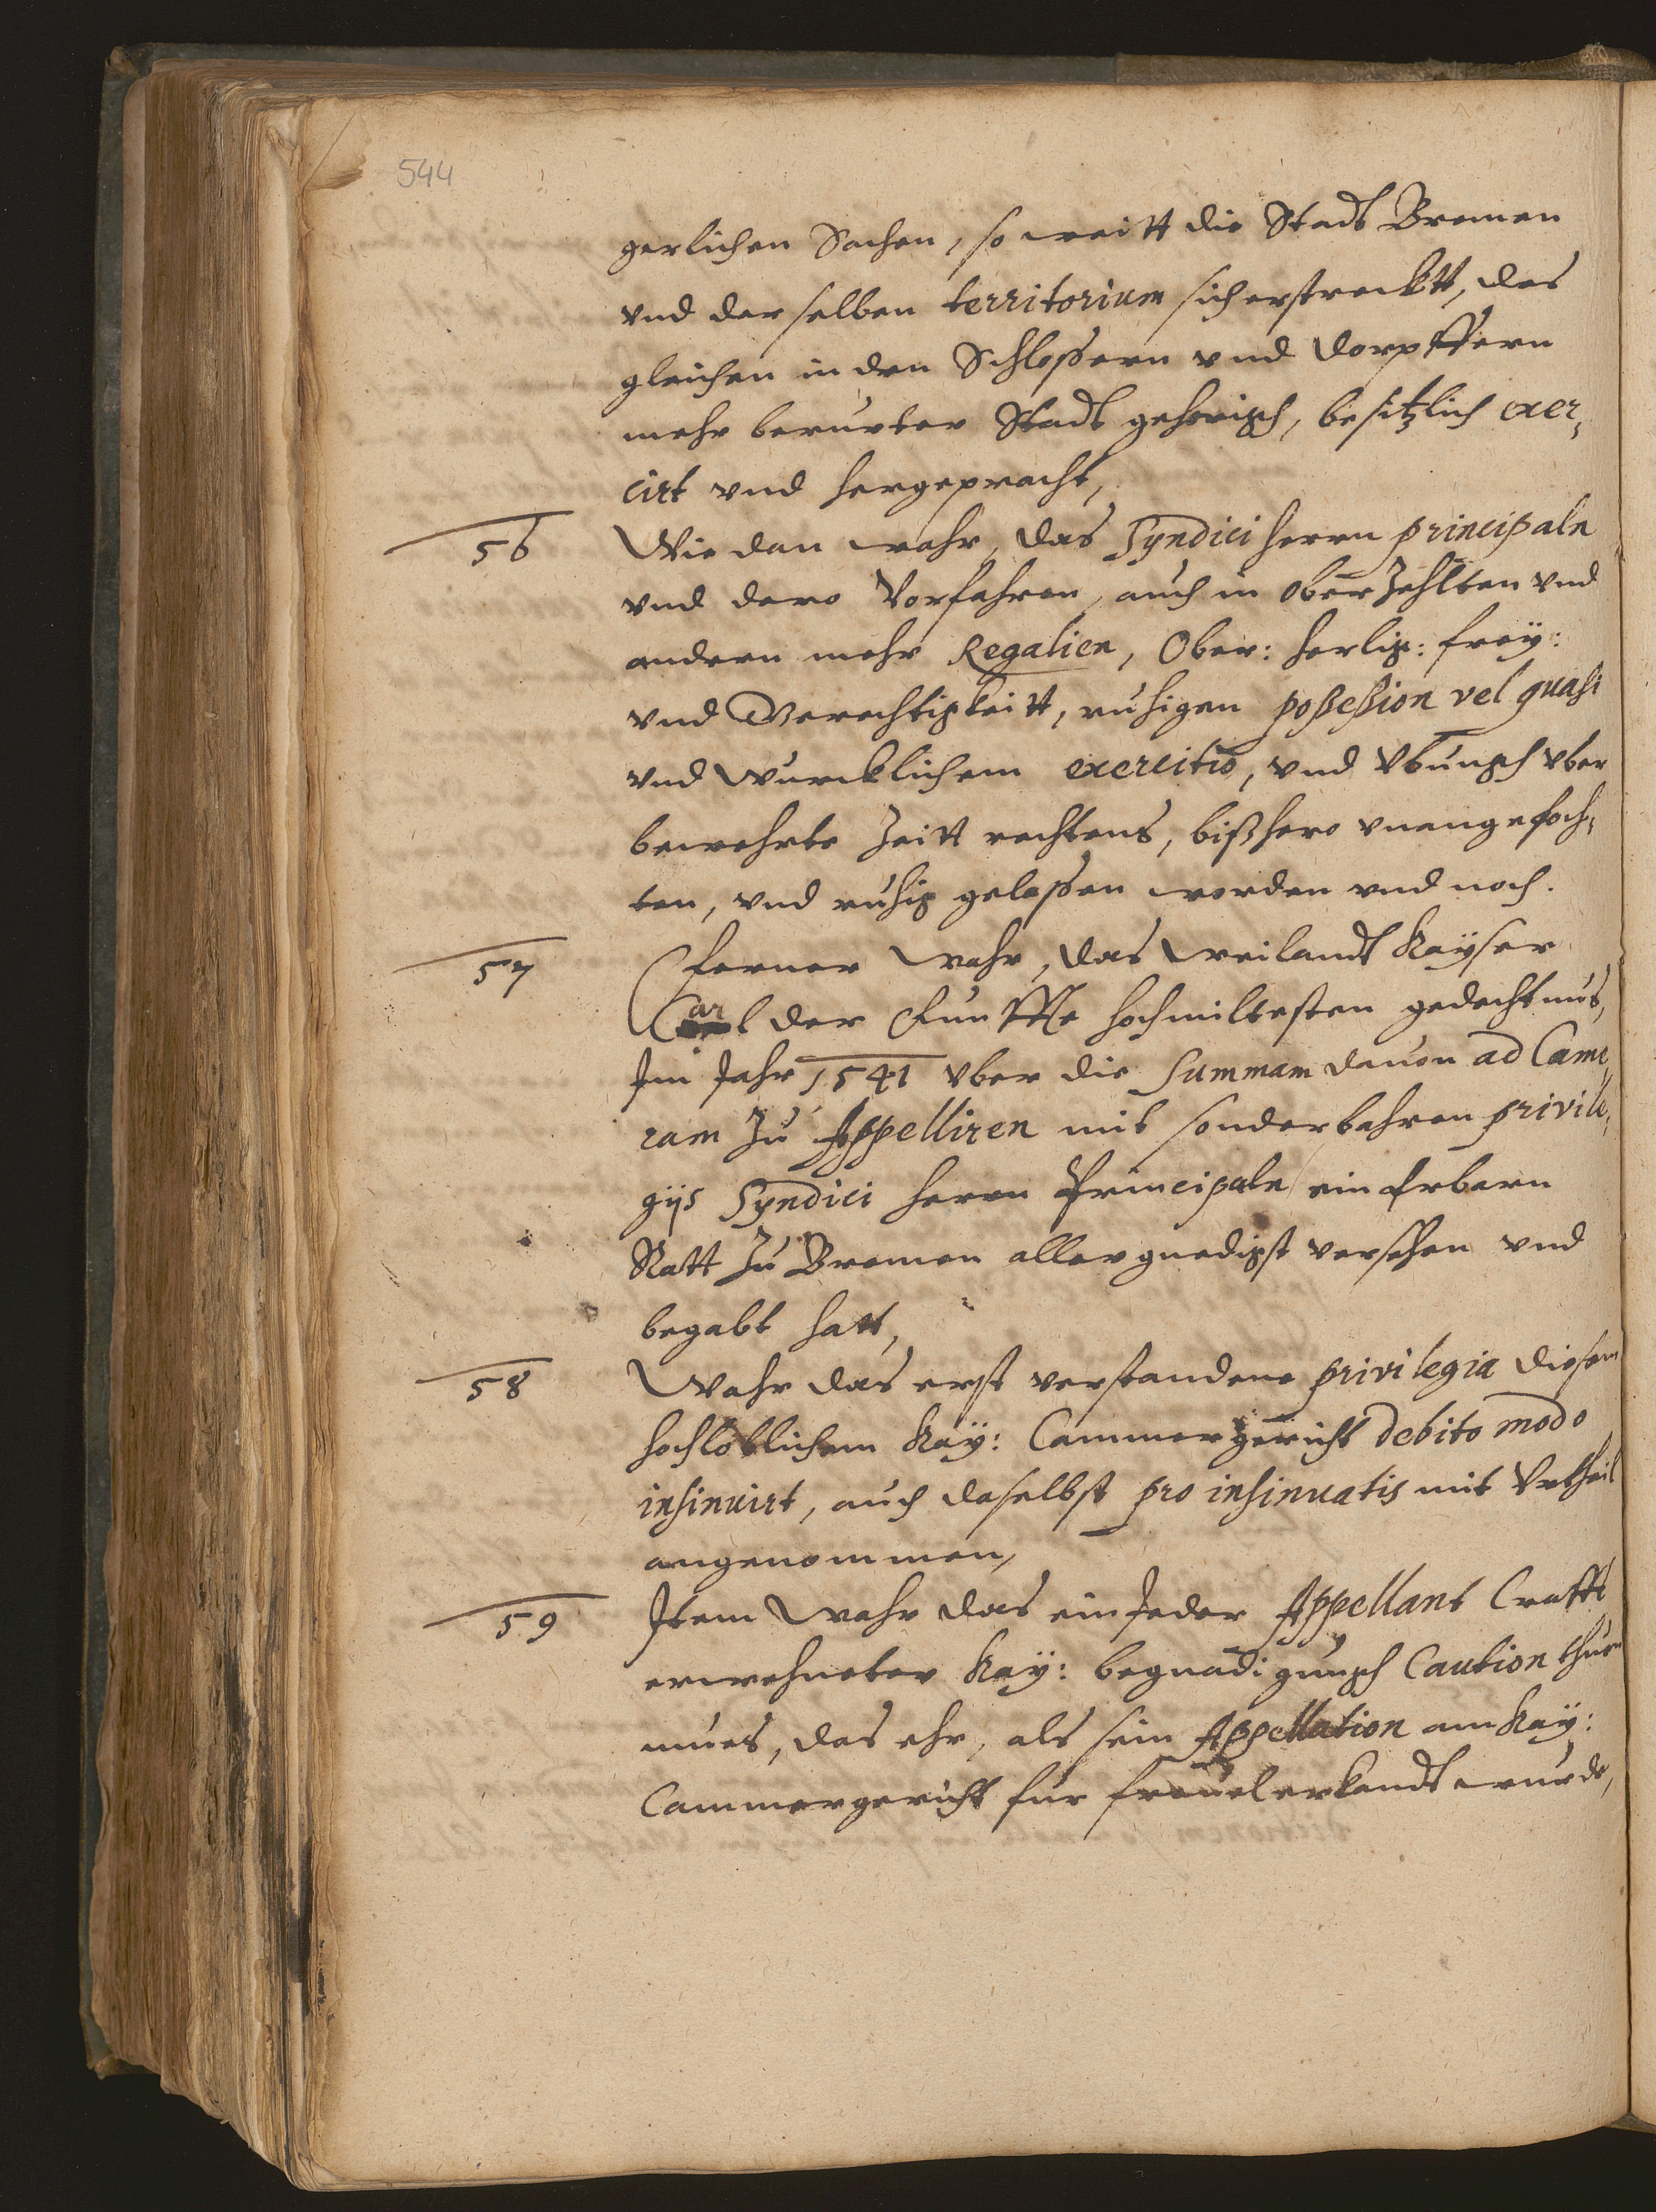 544
gerlichen Sachen, so weitt die Stadt Bremen
vnd derselben territorium sich erstrecktt, des
gleichen in den Schlossern vnd Dorpffern
mehr berurter Stadt gehorigh, besitzlich exer,
cirt vnd hergepracht,
56 Wie dan wahr, das Syndici herrn principaln
vnd dero Vorfahren, auch in oberzehlten vnd
andern mehr Regalien, Ober: herlig: frey:
vnd Gerechtigkeitt, ruhigen possession vel quasi
vnd wurcklichem exercitio, vnd vbungh vber
bewehrte Zeitt rechtens, bißhero vnangefoch,
ten, vnd ruhig gelassen worden vnd noch.
57 ferner wahr, das weilandt Kayser
Carl der Funffte hochmiltesten gedechtnus,
Im Jahr 1541 vber die Summam dauon ad Came,
ram zu Appelliren mit sonderbahren privile,
gijs Syndici herrn Principaln ein Erbarn
Ratt zu Bremen allergnedigst versehen vnd
begabt hatt,
58 Wahr das erst verstandene privilegia diesem
hochloblichem Kay: Cammergericht debito modo
insinuirt, auch daselbst pro insinuatis mit Vrtheil
angenommen,
59 Item wahr das ein Jeder Appellant Crafft
erwehneter Kay: begnadigungh Caution thun
mues, das ehr, als sein Appellation am Kay:
Cammergericht fur freuel erkandt wurde,